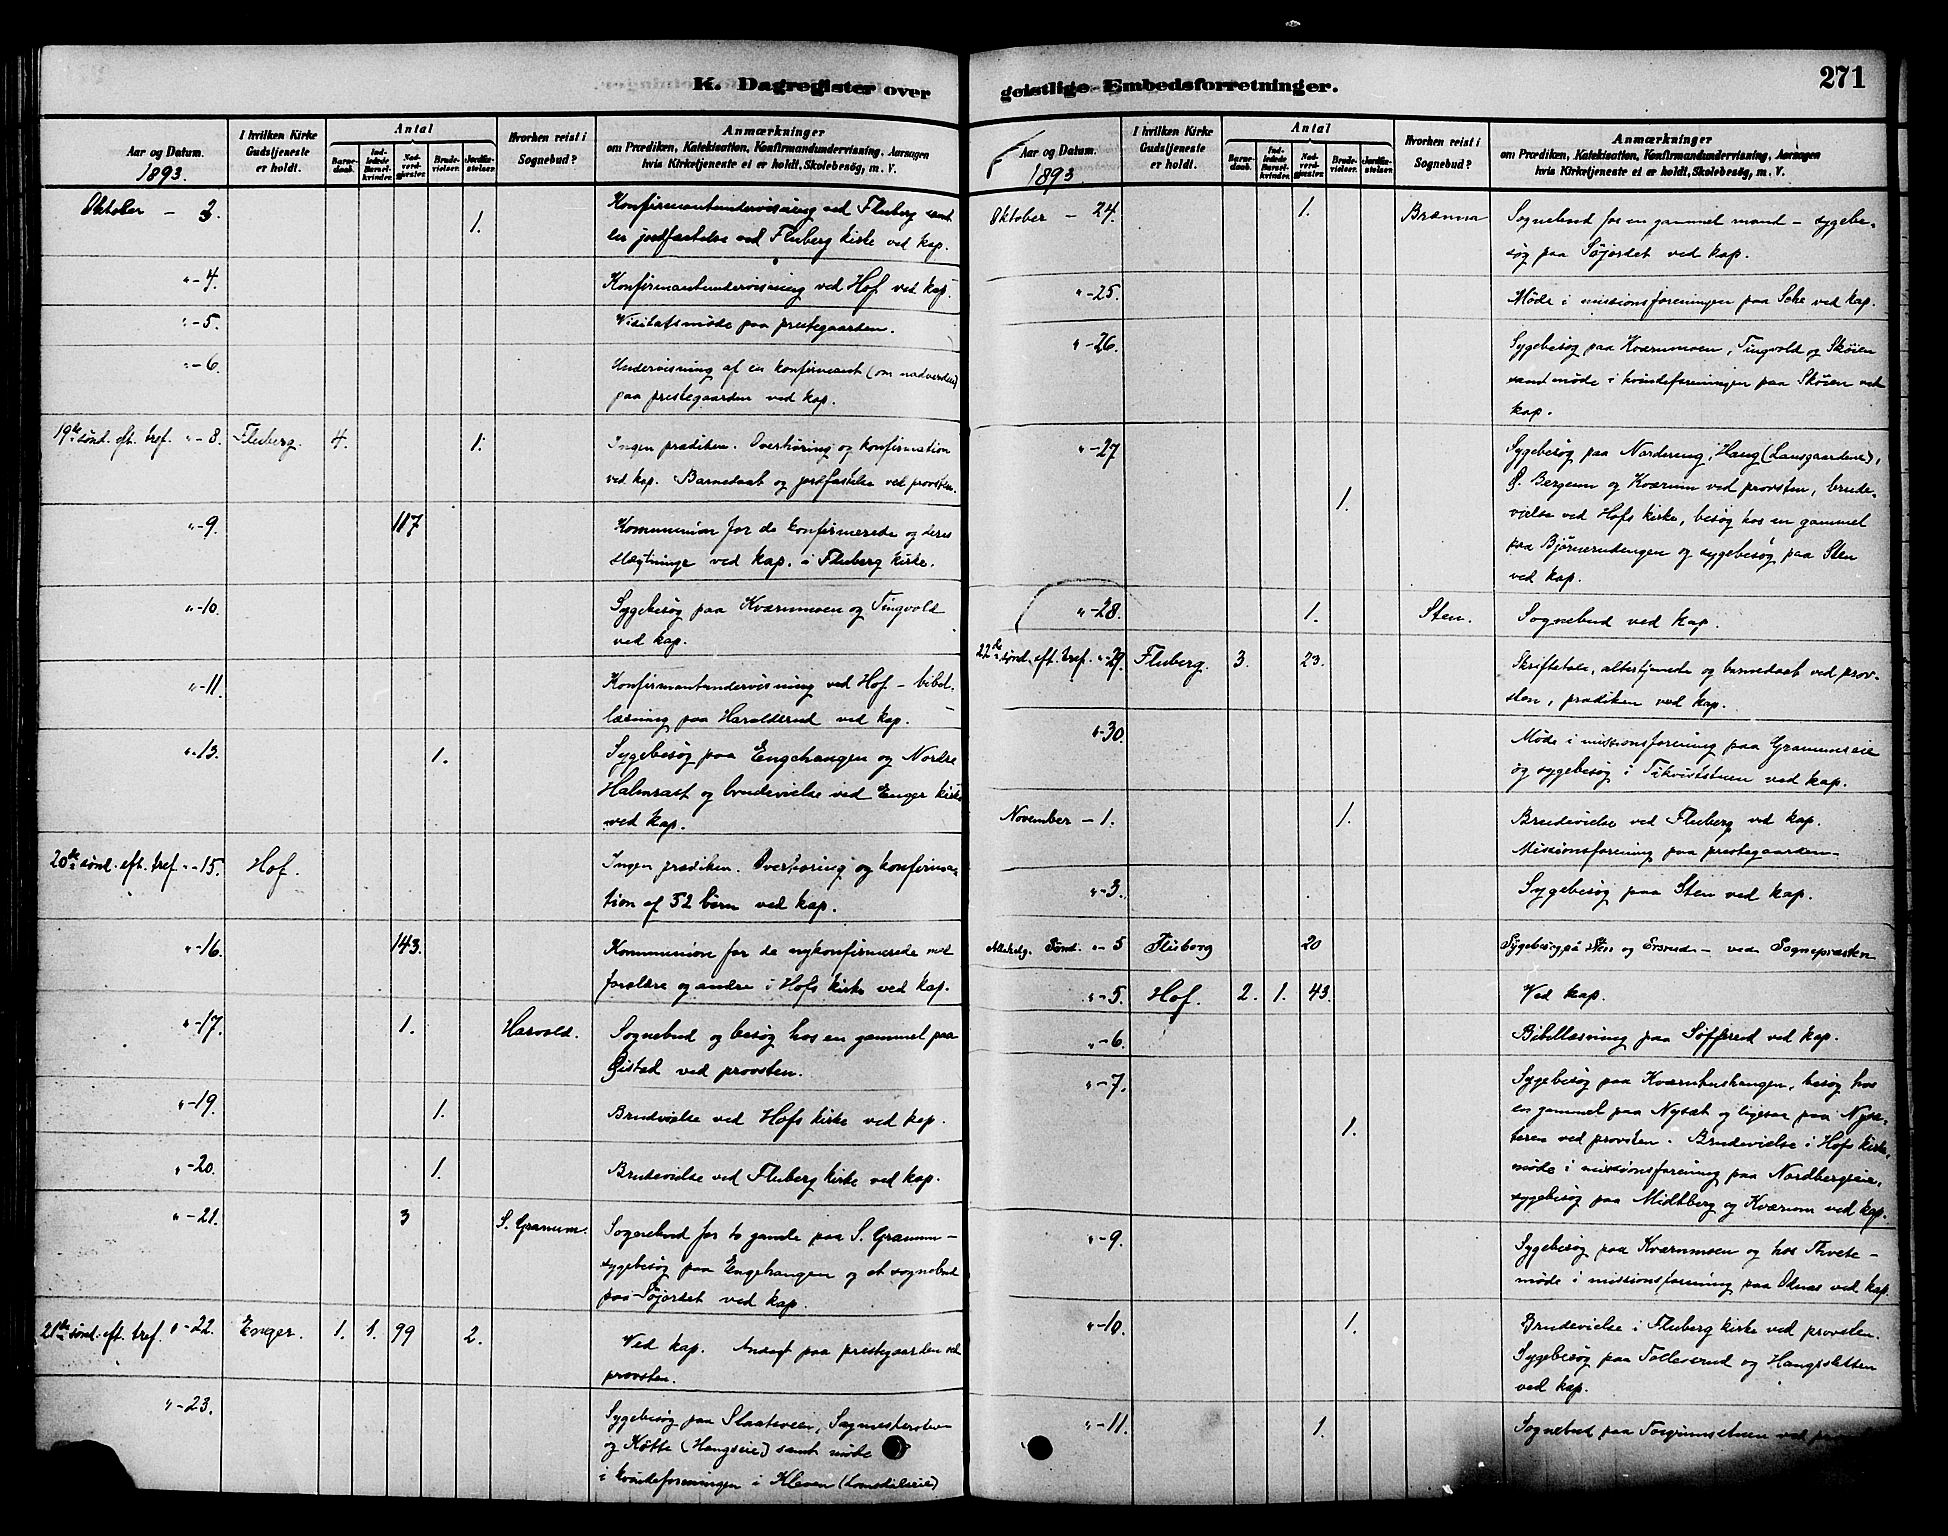 K. Dagregister over
Aar og Datum.
1893.
I hvilken Kirke Gudstjeneste er holdt.
Antal
Barnedaab.
Indledede Barselkvinder.
Nadverdgjester.
Brudevielser.
Jordfæstelser.
Hvorhen reist i Sognebud?
Anmærkninger
om Prædiken, Katekisation, Konfirmandundervisning, Aarsagen
hvis Kirketjeneste ei er holdt, Skolebesøg, m. V.
Oktober - 3. 1. Konfirmantundervisning ved Fluberg samt
jordfæstelse ved Fluberg kirke ved kap.
" - 4. Konfirmantundervisning ved Hof ved kap.
" - 5. Visitatsmøde paa prestegaarden.
" - 6. Undervisning af en konfirmant (om nadverden)
paa prestegaarden ved kap.
19de sønd. eft. tref. " - 8. Fluberg. 4. 1. Ingen prædiken. Overhøring og konfirmation
ved kap. Barnedaab og jordfæstelse ved provsten.
" - 9. 117 Kommunion for de konfirmerede og deres
slægtninge ved kap. i Fluberg kirke.
" - 10. Sygebesøg paa Kværnmoen og Tingvold
ved kap.
" - 11. Konfirmantundervisning ved Hof - bibel-
læsning paa Haralderud ved kap.
" - 13. 1. Sygebesøg paa Engehaugen og Nordre
Halmrast og brudevielse ved Enger kirke
ved kap.
20de sønd. eft. tref. " - 15. Hof. Ingen prædiken. Overhøring og konfirma-
tion af 52 børn ved kap.
" - 16. 143. Kommunion for de nykonfirmerede med
forældre og andre i Hofs kirke ved kap.
" - 17. 1. Harvold. Sognebud og besøg hos en gammel paa
Øistad ved provsten.
" - 19. 1. Brudevielse ved Hofs kirke ved kap.
" - 20. 1. Brudevielse ved Fluberg kirke ved kap.
" - 21. 3 S. Granum. Sognebud for to gamle paa S. Granum -
sygebesøg paa Engehaugen og et sognebud
paa Søjordet ved kap.
21de sønd. eft. tref. " - 22. Enger. 1. 1. 99 2. Ved kap. Andagt paa prestegaarden ved
provsten.
" - 23. Sygebesøg paa Slaatsveen,
og Køtte (Haugseie) samt møde
i kvindeforeningen i Kleven
geistlige Embedsforretninger.
271
Aar og Datum.
1893
I hvilken Kirke Gudstjeneste er holdt.
Antal
Barnedaab.
Indledede Barselkvinder.
Nadverdgjester.
Brudevielser.
Jordfæstelser.
Hvorhen reist i Sognebud?
Anmærkninger
om Prædiken, Katekisation, Konfirmandundervisning, Aarsagen
hvis Kirketjeneste ei er holdt, Skolebesøg, m. V.
Oktober - 24. 1. Brænna Sognebud for en gammel mand - sygebe-
søg paa Søjordet ved kap.
" - 25. Møde i missionsforeningen paa Sche ved kap.
" - 26. Sygebesøg paa Kværnmoen, Tingvold og Skøien
samt møde i kvindeforeningen paa Skøien ved
kap.
" - 27 1. Sygebesøg paa Nordereng, Haug (Lansgaardene),
Ø. Bergum og Kværum ved provsten, brude-
vielse ved Hofs kirke, besøg hos en gammel
paa Bjørnerudengen og sygebesøg paa Sten
ved kap.
" - 28. 1. Sten. Sognebud ved kap.
22de sønd. eft. tref. " - 29. Fluberg. 3. 23. Skriftetale, altertjeneste og barnedaab ved prov-
sten, prædiken ved kap.
" - 30. Møde i missionsforening paa Granumseie
og sygebesøg i ved kap.
November - 1. 1. Brudevielse ved Fluberg ved kap.
Missionsforening paa prestegaarden -
" - 3. Sygebesøg paa Sten ved kap.
Allehelg. Sønd. " - 5 Fluberg 20 Sygebesøg på Sten og Ersrud - ved Sognepræsten
" - 5. Hof. 2. 1. 43. Ved kap.
" - 6. Bibellæsning paa Søfferud ved kap.
" - 7. 1. Sygebesøg paa Kværnhushaugen, besøg hos
en gammel paa Nysæt og ligesaa paa Nysæ-
teren ved provsten. Brudevielse i Hofs kirke,
møde i missionsforening paa Nordbergseie,
sygebesøg paa Midtberg og Kværum ved kap.
" - 9. Sygebesøg paa Kværnmoen og hos Thvete -
møde i missionsforening paa Odnæs ved kap.
" - 10. 1. Brudevielse i Fluberg kirke ved provsten.
Sygebesøg paa Tollerud og Haugsletten
ved kap.
" - 11. 1. Sognebud paa Torgrimstuen ved